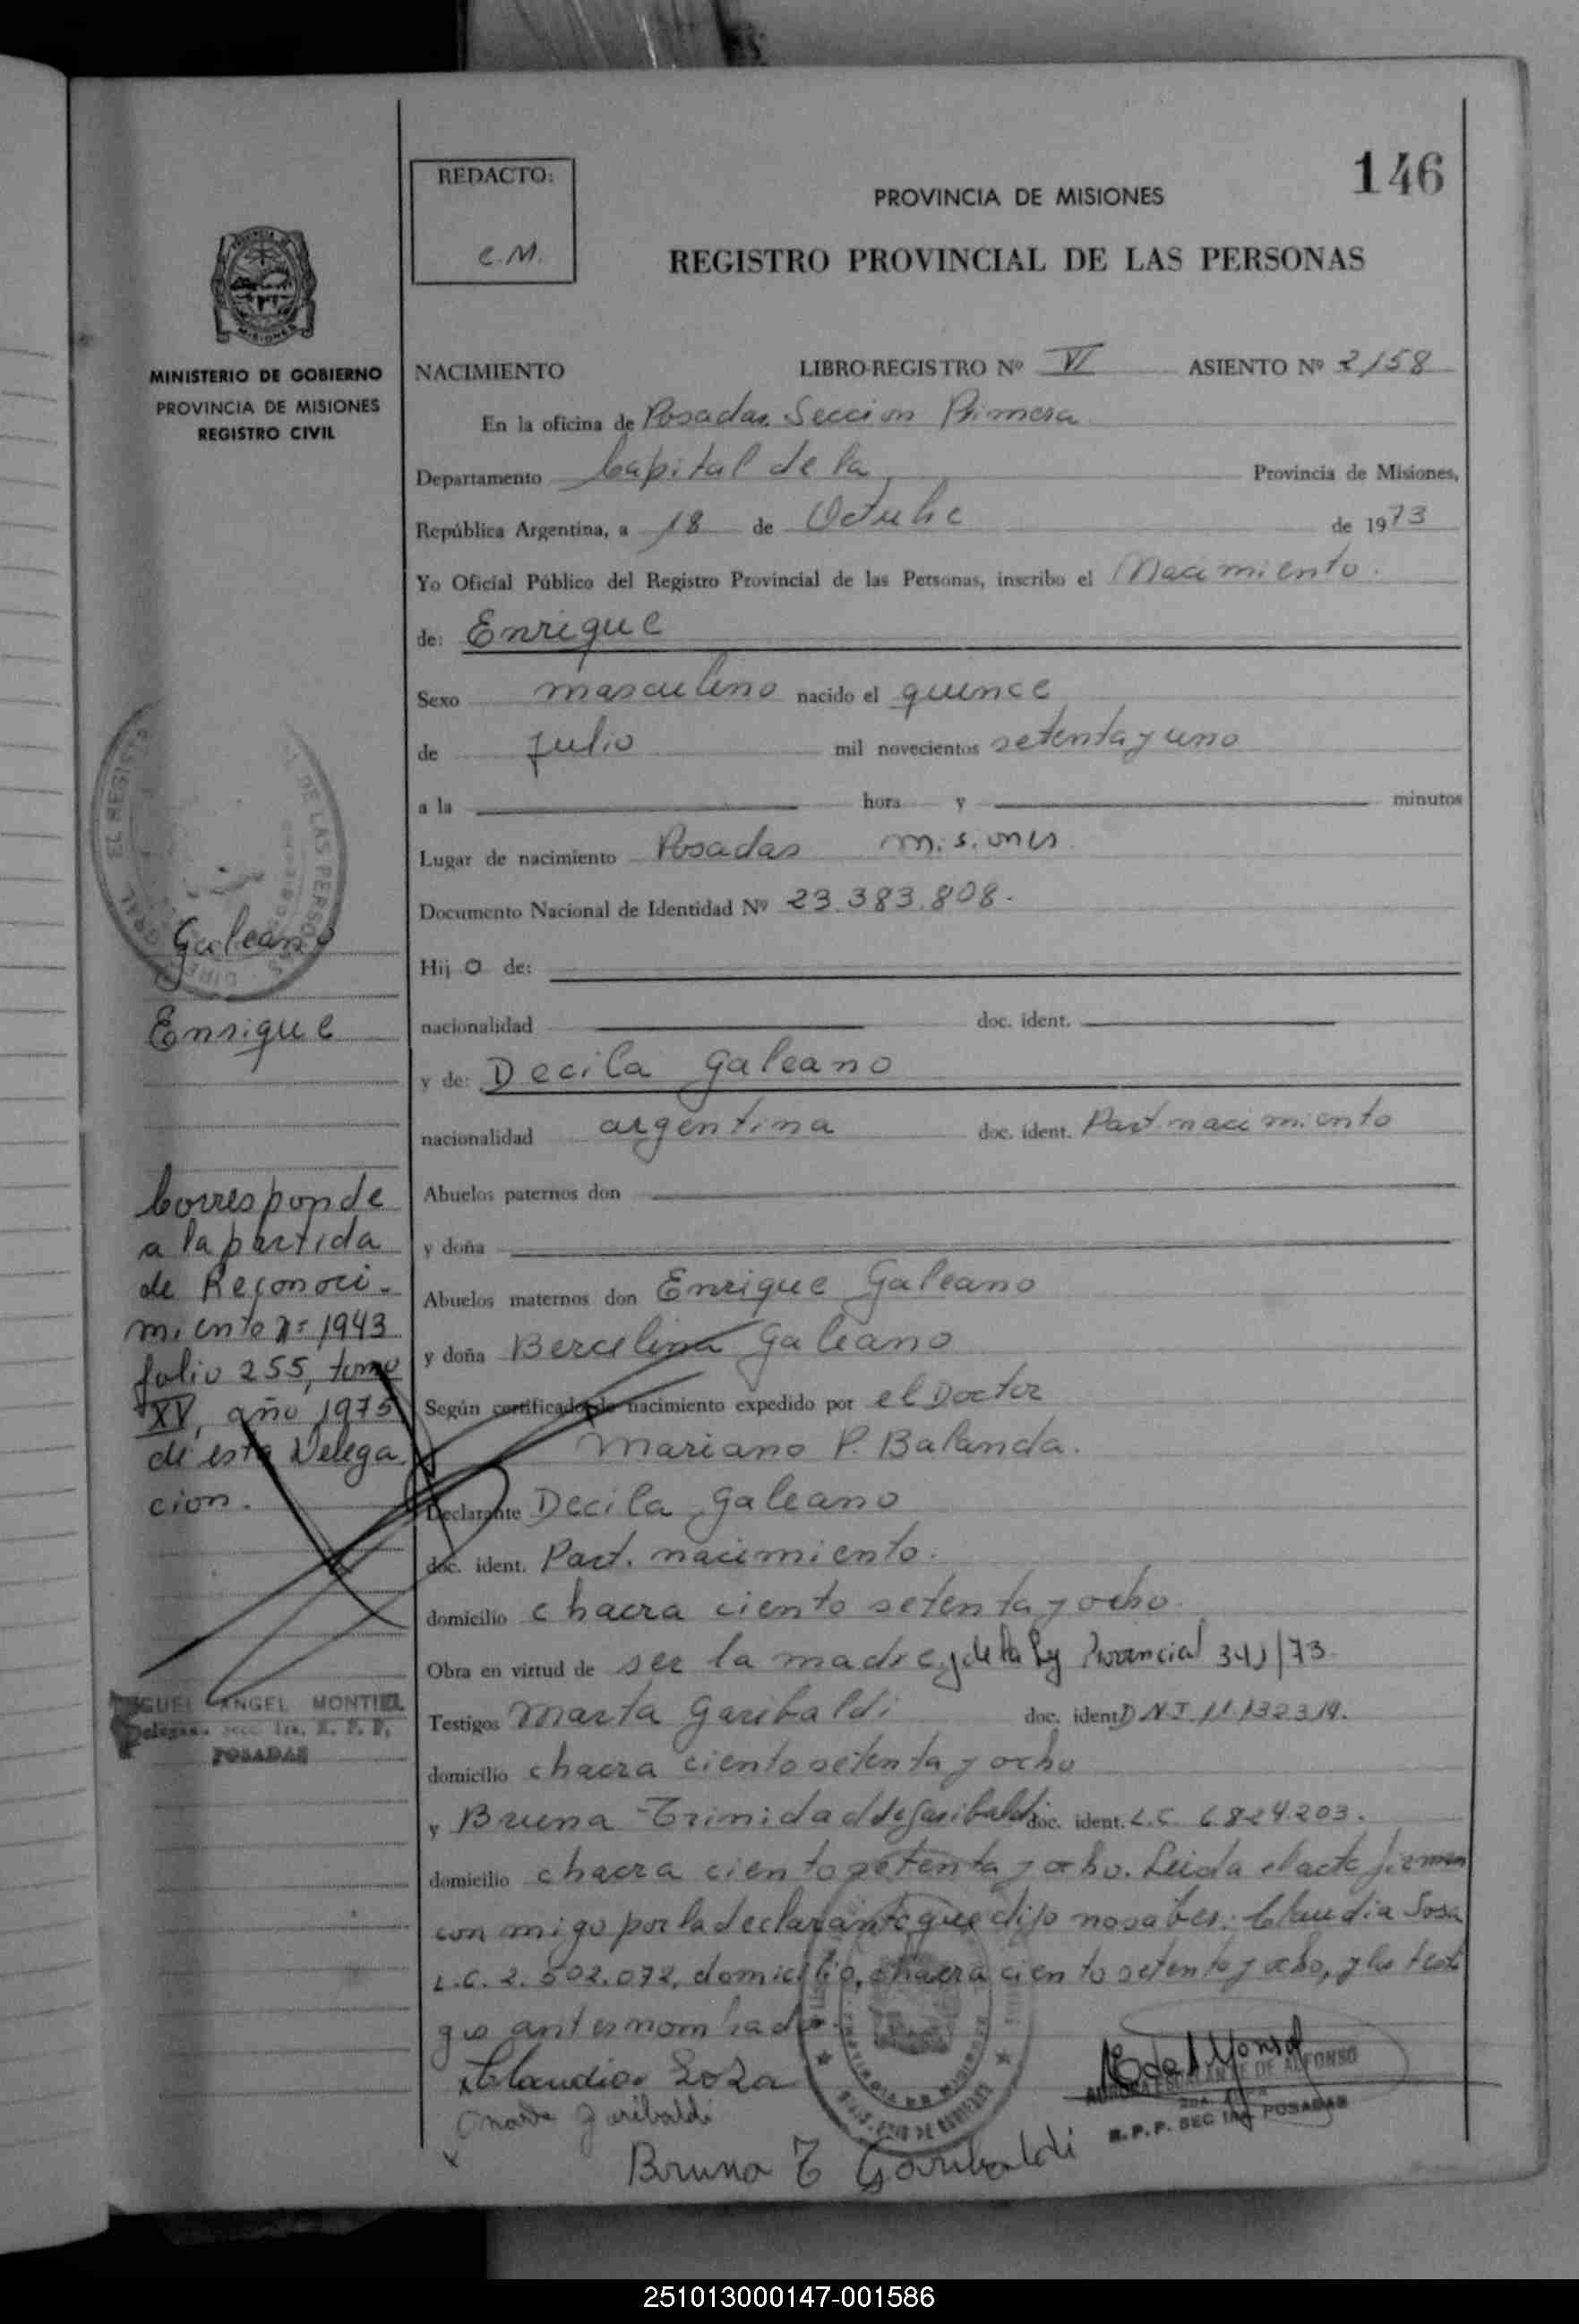 146
REDACTO:
C.M.
PROVINCIA DE MISIONES
REGISTRO PROVINCIAL DE LAS PERSONAS
MINISTERIO DE GOBIERNO
PROVINCIA DE MISIONES
REGISTRO CIVIL
NACIMIENTO LIBRO-REGISTRO Nº VI ASIENTO Nº 2158
En la oficina de Posadas Seccion Primera
Departamento Capital de la Provincia de Misiones,
República Argentina, a 18 de Octubre de 1973
Yo Oficial Público del Registro Provincial de las Personas, inscribo el Nacimiento.
de: Enrique
Sexo masculino nacido el quince
de julio mil novecientos setenta y uno
a la hora y minutos
Lugar de nacimiento Posadas Misiones
Documento Nacional de Identidad Nº 23.383.808.
Hij o de:
nacionalidad doc. ident.
y de: Decila Galeano
nacionalidad argentina doc. ident. Part nacimiento
Abuelos paternos don
y doña
Abuelos maternos don Enrique Galeano
y doña Bercelina Galeano
Según certificado de nacimiento expedido por el Doctor
Mariano P. Balanda.
Declarante Decila Galeano
doc. ident. Part. nacimiento.
domicilio chacra ciento setenta y ocho.
Obra en virtud de ser la madre y de la Ley Provincial /73.
Testigos Marta Garibaldi doc. ident. D.N.I. 11.132.319.
domicilio chacra ciento setenta y ocho
y Bruna Trinidad de Garibaldi doc. ident. L.C. 6.824.203.
domicilio chacra ciento setenta y ocho. Leida el acta firman
con migo por la declarante que dijo no saber: Claudia Sosa
L.C. 2.502.072, domicilio, chacra ciento setenta y ocho, y los testi
gos antes nombrados.
Claudia Soza
Marta Garibaldi
Bruna T Garibaldi
Galeano
Enrique
Corresponde
a la partida
de Reconoci-
miento nº 1943
folio 255, tomo
XV, año 1975
de esta Delega
cion.
MIGUEL ANGEL MONTIEL
POSADAS
ESCALANTE DE ALFONSO
R.P.P. SEC 1RA POSADAS
251013000147-001586